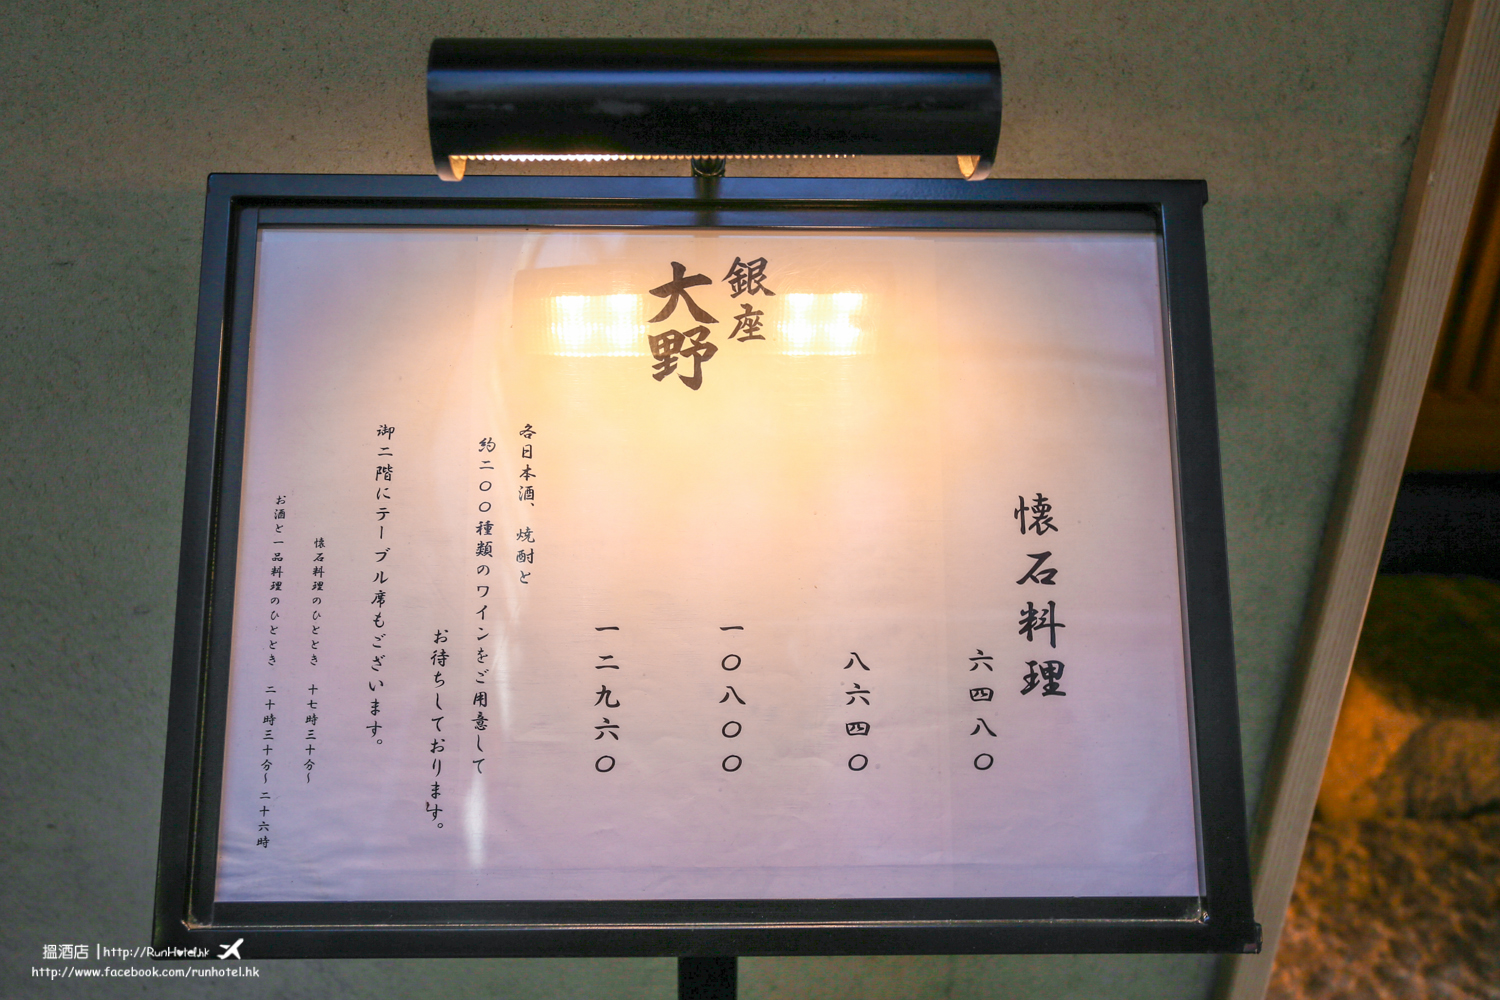 銀座
大野
懐石料理
六四八〇
八六四〇
一〇八〇〇
一二九六〇
各日本酒、焼酎と
約二〇〇種類のワインをご用意して
お待ちしております。
御二階にテーブル席もございます。
懐石料理のひととき 十七時三十分〜
お酒と一品料理のひととき 二十時三十分〜二十六時
搵酒店 | http://RunHotel.hk
http://www.facebook.com/runhotel.hk